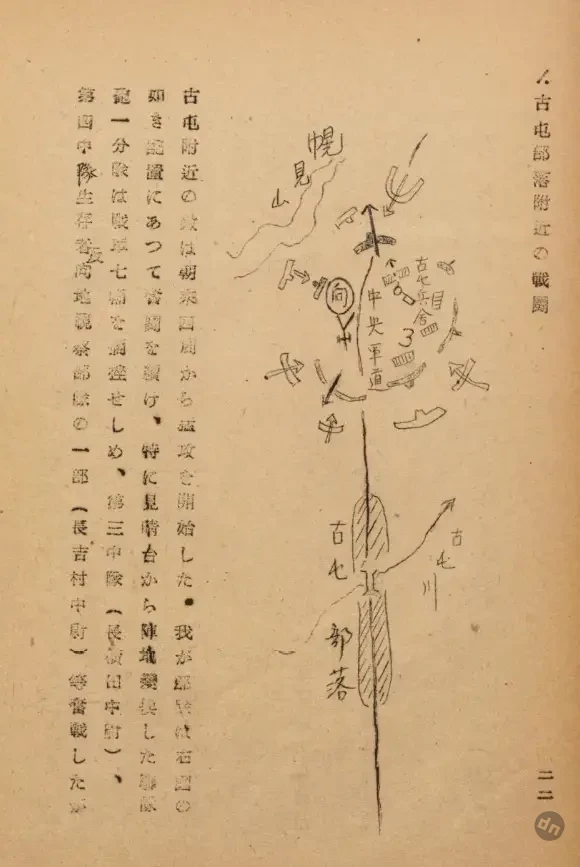 八 古屯部落附近の戦闘
幌見山
向
中央軍道
古屯兵舎
3
古屯
部落
古屯川
古屯附近の敵は朝來四周から猛攻を開始した。我が部隊は右圖の
如き配置にあつて奮闘を續け、特に見晴台から陣地變換した聯隊
砲一分隊は戦車七輛を擱挫せしめ、第三中隊(長横田中尉)、
第四中隊生存者向地視察部隊の一部(長吉村中尉)等奮戦したが
二二
dn